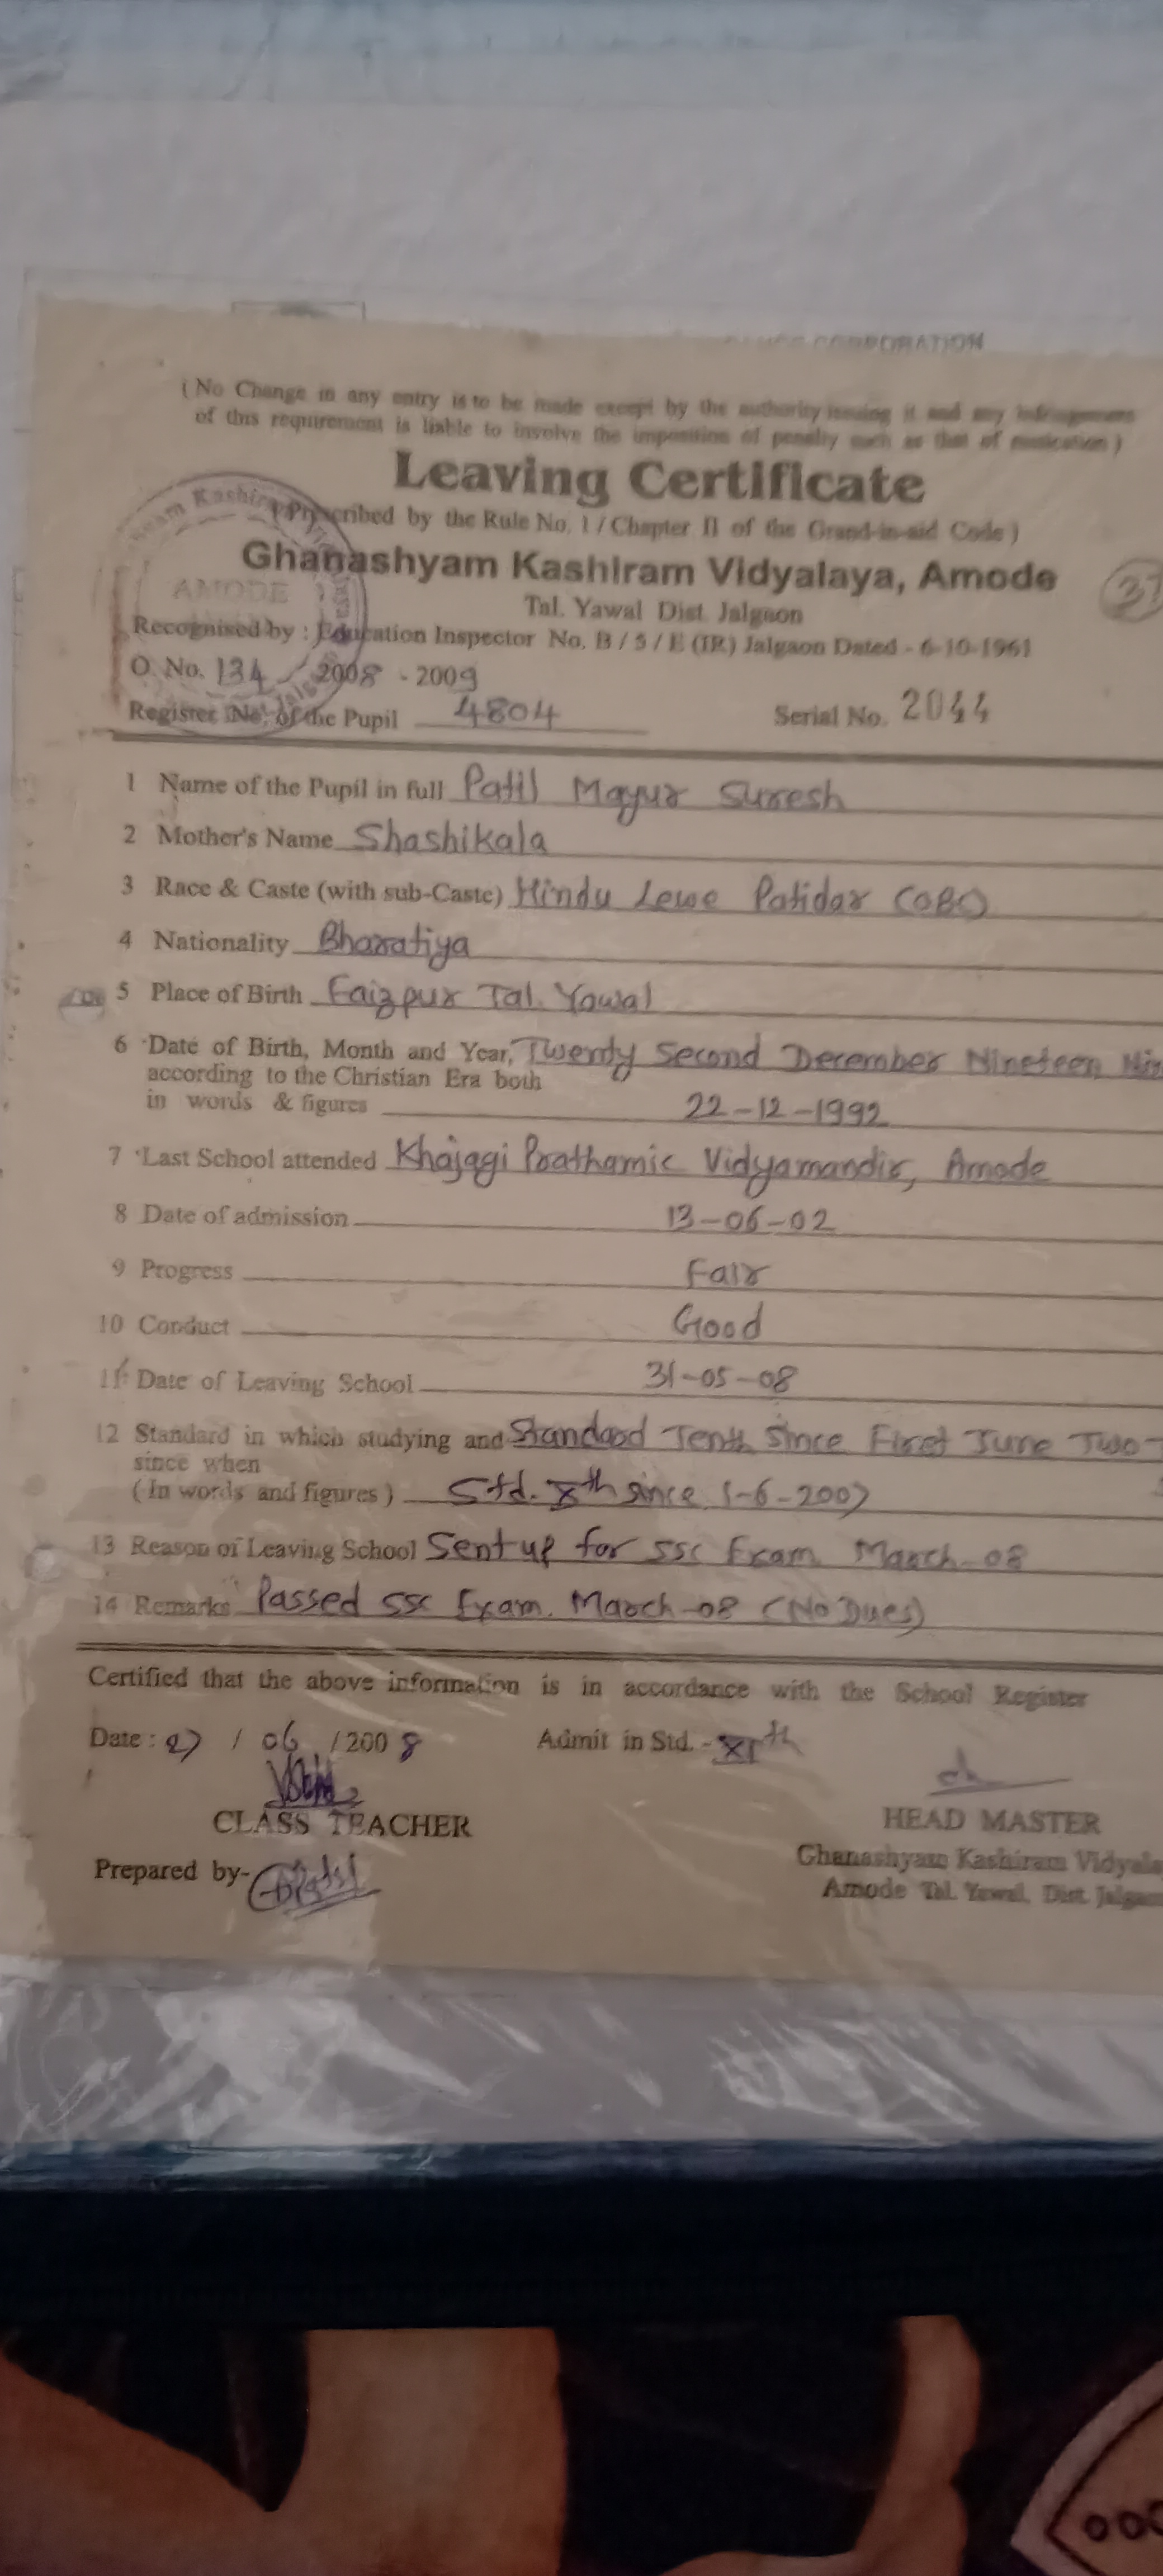 CORPORATION
( No Change in any entry is to be made except by the authority issuing it and any infringement
of this requirement is liable to involve the imposition of penalty such as that of rustication )
Leaving Certificate
( Prescribed by the Rule No. 1 / Chapter II of the Grand-in-aid Code )
Ghanashyam Kashiram Vidyalaya, Amode
AMODE
Tal. Yawal Dist. Jalgaon
Recognised by : Education Inspector No. B / S / E (IR) Jalgaon Dated - 6-10-1961
O. No. 134 / 2008 - 2009
Register No. of the Pupil 4804 Serial No. 2044
1 Name of the Pupil in full Patil Mayur Suresh
2 Mother's Name Shashikala
3 Race & Caste (with sub-Caste) Hindu Lewe Patidar (OBC)
4 Nationality Bharatiya
5 Place of Birth Faizpur Tal. Yawal
6 Date of Birth, Month and Year, Twenty Second December Nineteen
according to the Christian Era both
in words & figures 22-12-1992
7 Last School attended Khajagi Prathamic Vidyamandir, Amode
8 Date of admission 13-06-02
9 Progress Fair
10 Conduct Good
11 Date of Leaving School 31-05-08
12 Standard in which studying and Standard Tenth Since First June Two
since when
( In words and figures ) Std. Xth since 1-6-2007
13 Reason of Leaving School Sent up for SSC Exam March-08
14 Remarks Passed SSC Exam. March-08 (No Dues)
Certified that the above information is in accordance with the School Register
Date : 27 / 06 / 2008 Admit in Std. - XIth
CLASS TEACHER HEAD MASTER
Prepared by- Ghanashyam Kashiram Vidyala
Amode Tal. Yawal, Dist. Jalgaon